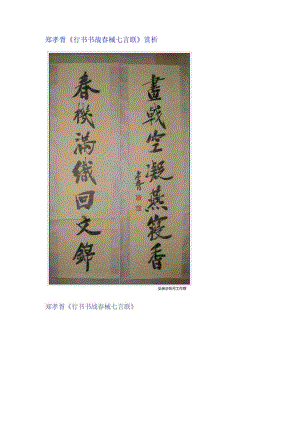 郑孝胥《行书书战春械七言联》赏析
畫戟空凝燕寢香
孝胥
春機滿織回文錦
郑孝胥《行书书战春械七言联》